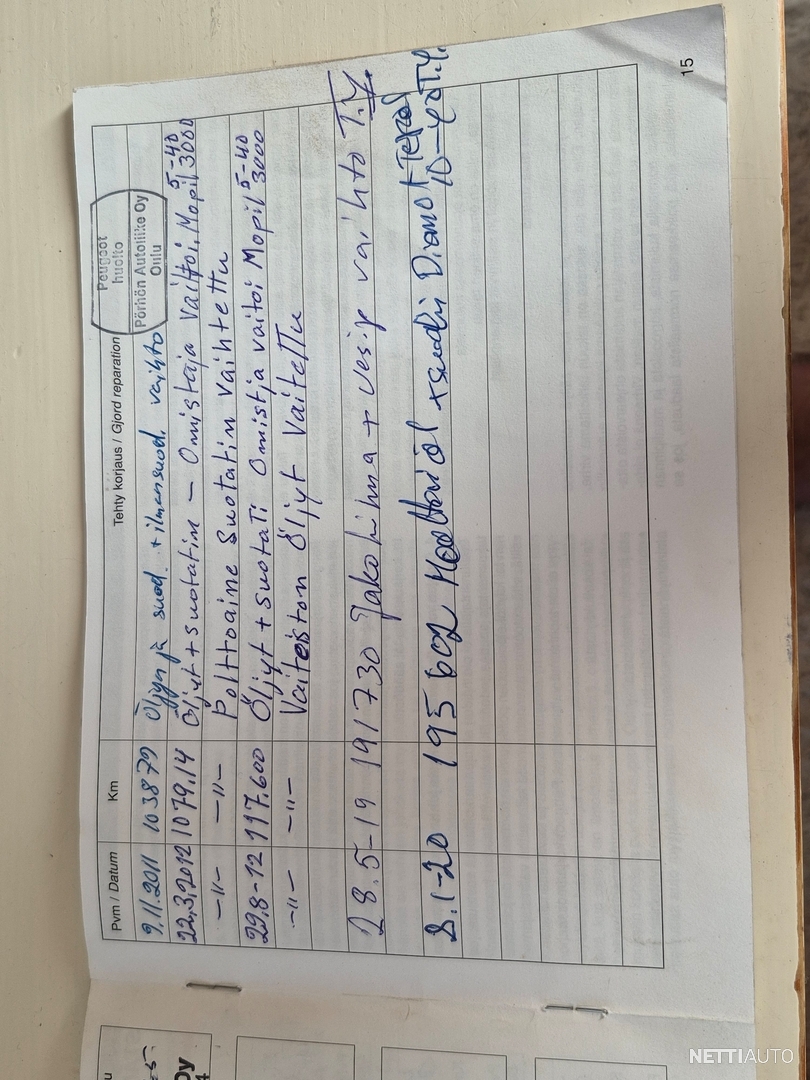 Pvm / Datum Km Tehty korjaus / Gjord reparation
Peugeot
huolto
Pörhön Autoliike Oy
Oulu
9.11.2011 103879 Öljyn ja suod. + ilmansuod. vaihto
22.3.2012 1079.14 Öljyt + suotatin – Omistaja Vaitoi, Mopil 5-40 3000
–"– –"– Polttoaine Suotatin Vaihtettu
29.8-12 117.600 Öljyt + suotati Omistja vaitoi Mopil 5-40 3000
–"– –"– Vaiteiston Öljyt Vaitettu
28.5-19 191730 Jakohihna + vesip vaihto T.Y.
8.1-20 195602 +suodi 10-40 T.Y.
15
Oy
NETTIAUTO